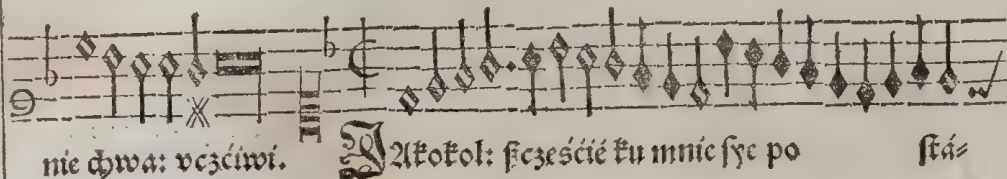 nie chwa: vczćiwi. JAkokol: ſcześćié ku mnie ſye po ſtá⸗